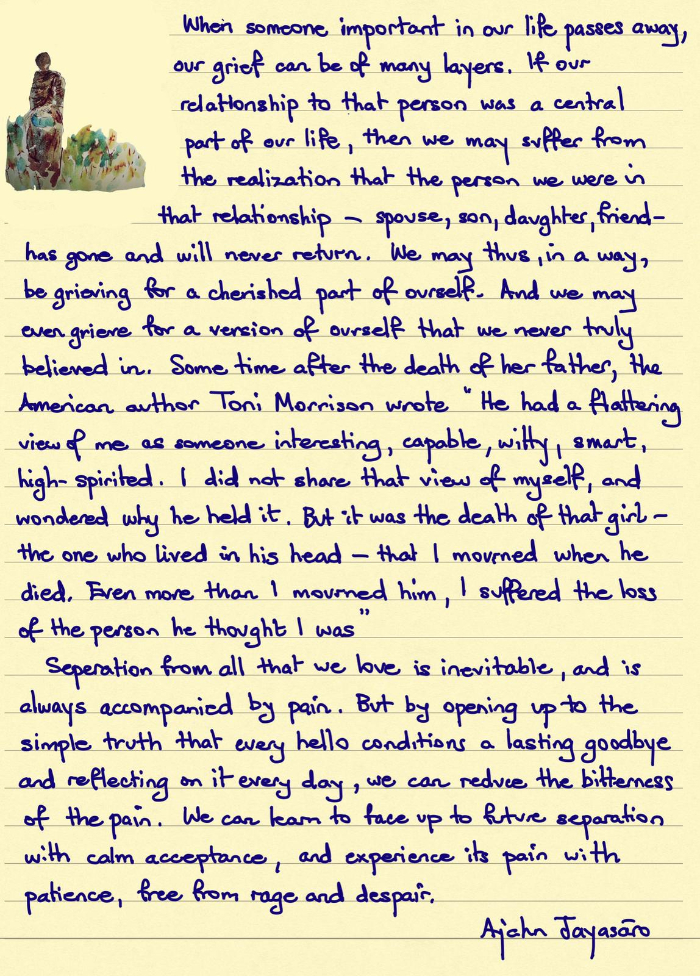 When someone important in our life passes away,
our grief can be of many layers. If our
relationship to that person was a central
part of our life, then we may suffer from
the realization that the person we were in
that relationship – spouse, son, daughter, friend–
has gone and will never return. We may thus, in a way,
be grieving for a cherished part of ourself. And we may
even grieve for a version of ourself that we never truly
believed in. Some time after the death of her father, the
American author Toni Morrison wrote " He had a flattering
view of me as someone interesting, capable, witty, smart,
high-spirited. I did not share that view of myself, and
wondered why he held it. But it was the death of that girl –
the one who lived in his head – that I mourned when he
died. Even more than I mourned him, I suffered the loss
of the person he thought I was"
Seperation from all that we love is inevitable, and is
always accompanied by pain. But by opening up to the
simple truth that every hello conditions a lasting goodbye
and reflecting on it every day, we can reduce the bitterness
of the pain. We can learn to face up to future separation
with calm acceptance, and experience its pain with
patience, free from rage and despair.
Ajahn Jayasāro